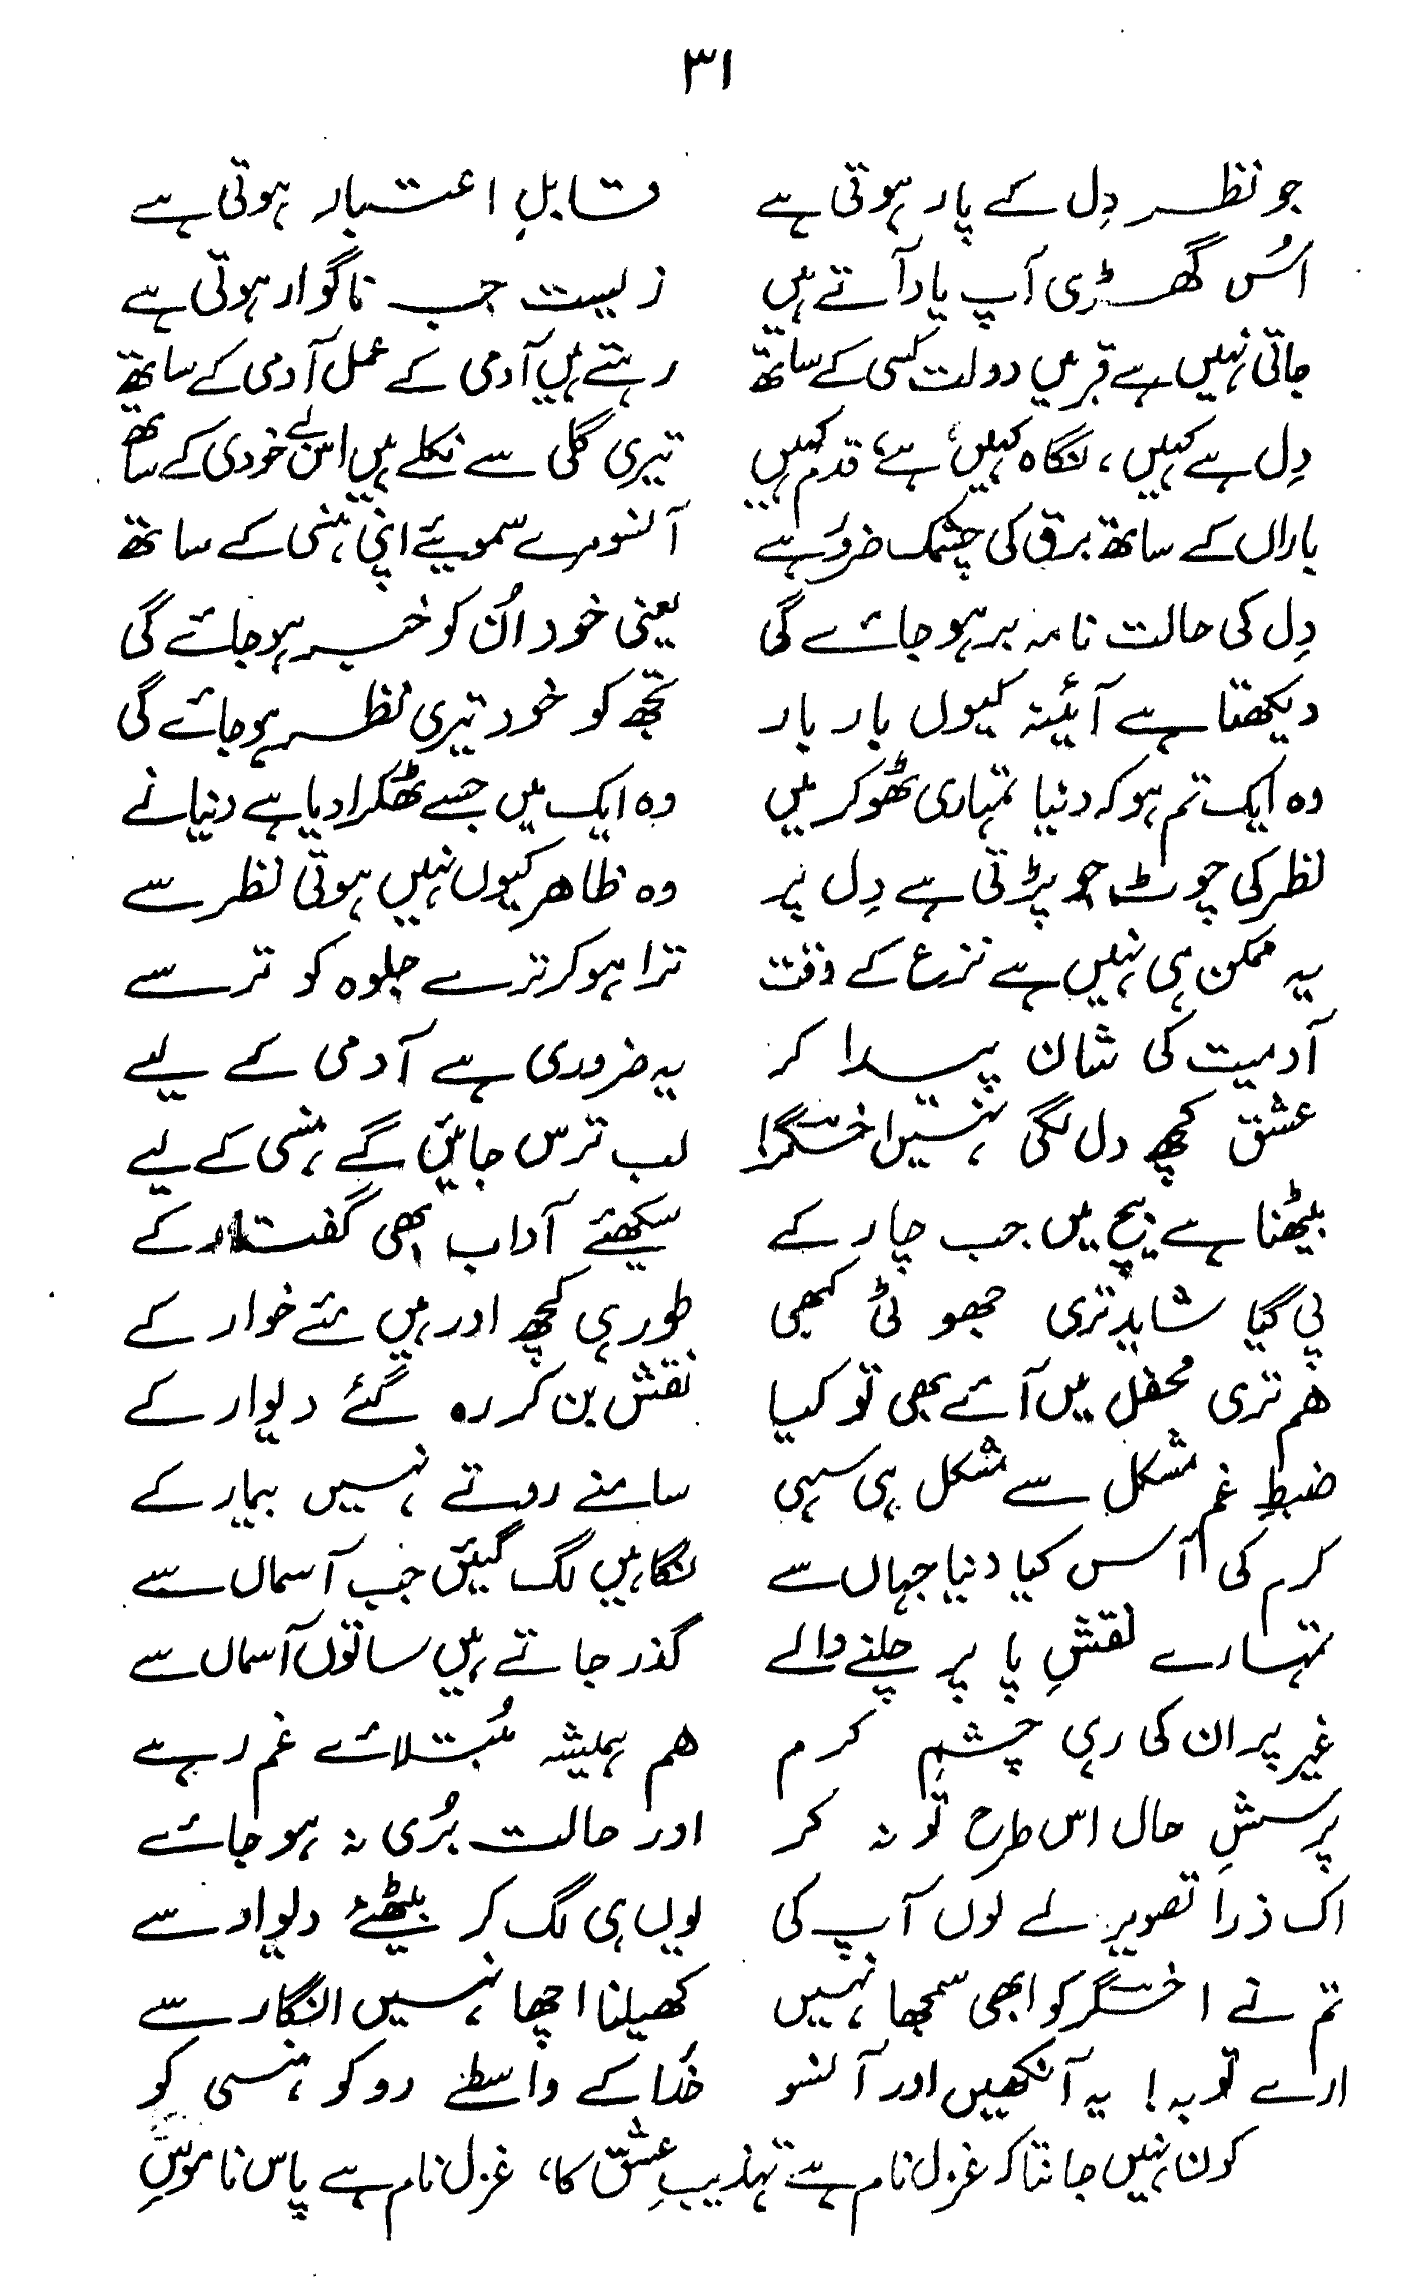 ۳۱
جو نظر دِل کے پار ہوتی ہے قابلِ اعتبار ہوتی ہے
اُس گھڑی آپ یاد آتے ہیں زیست جب ناگوار ہوتی ہے
جاتی نہیں ہے قبر میں دولت کسی کے ساتھ رہتے ہیں آدمی کے عمل آدمی کے ساتھ
دِل ہے کہیں، نگاہ کہیں ہے، قدم کہیں تیری گلی سے نکلے ہیں اس بے خودی کے ساتھ
باراں کے ساتھ برق کی چشمک ضرور ہے آنسو مرے سموئیے اپنی ہنسی کے ساتھ
دِل کی حالت نامہ بر ہو جائے گی یعنی خود اُن کو خبر ہو جائے گی
دیکھتا ہے آئینہ کیوں بار بار تجھ کو خود تیری نظر ہو جائے گی
وہ ایک تم ہو کہ دنیا تمہاری ٹھوکر میں وہ ایک میں جسے ٹھکرا دیا ہے دنیا نے
نظر کی چوٹ جو پڑتی ہے دِل پر وہ ظاہر کیوں نہیں ہوتی نظر سے
یہ ممکن ہی نہیں ہے نزع کے وقت ترا ہو کر ترے جلوہ کو ترسے
آدمیت کی شان پیدا کر یہ ضروری ہے آدمی کے لیے
عشق کچھ دل لگی نہیں اخگرؔ! لب ترس جائیں گے ہنسی کے لیے
بیٹھنا ہے بیچ میں جب چار کے سیکھئے آداب بھی گفتار کے
پی گیا شاید تری جھوٹی کبھی طور ہی کچھ اور ہیں مئے خوار کے
ہم تری محفل میں آئے بھی تو کیا نقش بن کر رہ گئے دیوار کے
ضبطِ غم مشکل سے مشکل ہی سہی سامنے روتے نہیں بیمار کے
کرم کی آس کیا دنیا جہاں سے نگاہیں لگ گئیں جب آسماں سے
تمہارے نقشِ پا پر چلنے والے گذر جاتے ہیں ساتوں آسماں سے
غیر پر ان کی رہی چشمِ کرم ہم ہمیشہ مُبتلائے غم رہے
پرسشِ حال اس طرح تو نہ کر اور حالت بُری نہ ہو جائے
اک ذرا تصویر لے لوں آپ کی یوں ہی لگ کر بیٹھئے دیوار سے
تم نے اخگرؔ کو ابھی سمجھا نہیں کھیلنا اچھا نہیں انگار سے
ارے توبہ! یہ آنکھیں اور آنسو خُدا کے واسطے روکو ہنسی کو
کون نہیں جانتا کہ غزل نام ہے تہذیبِ عشق کا، غزل نام ہے پاس ناموسِ